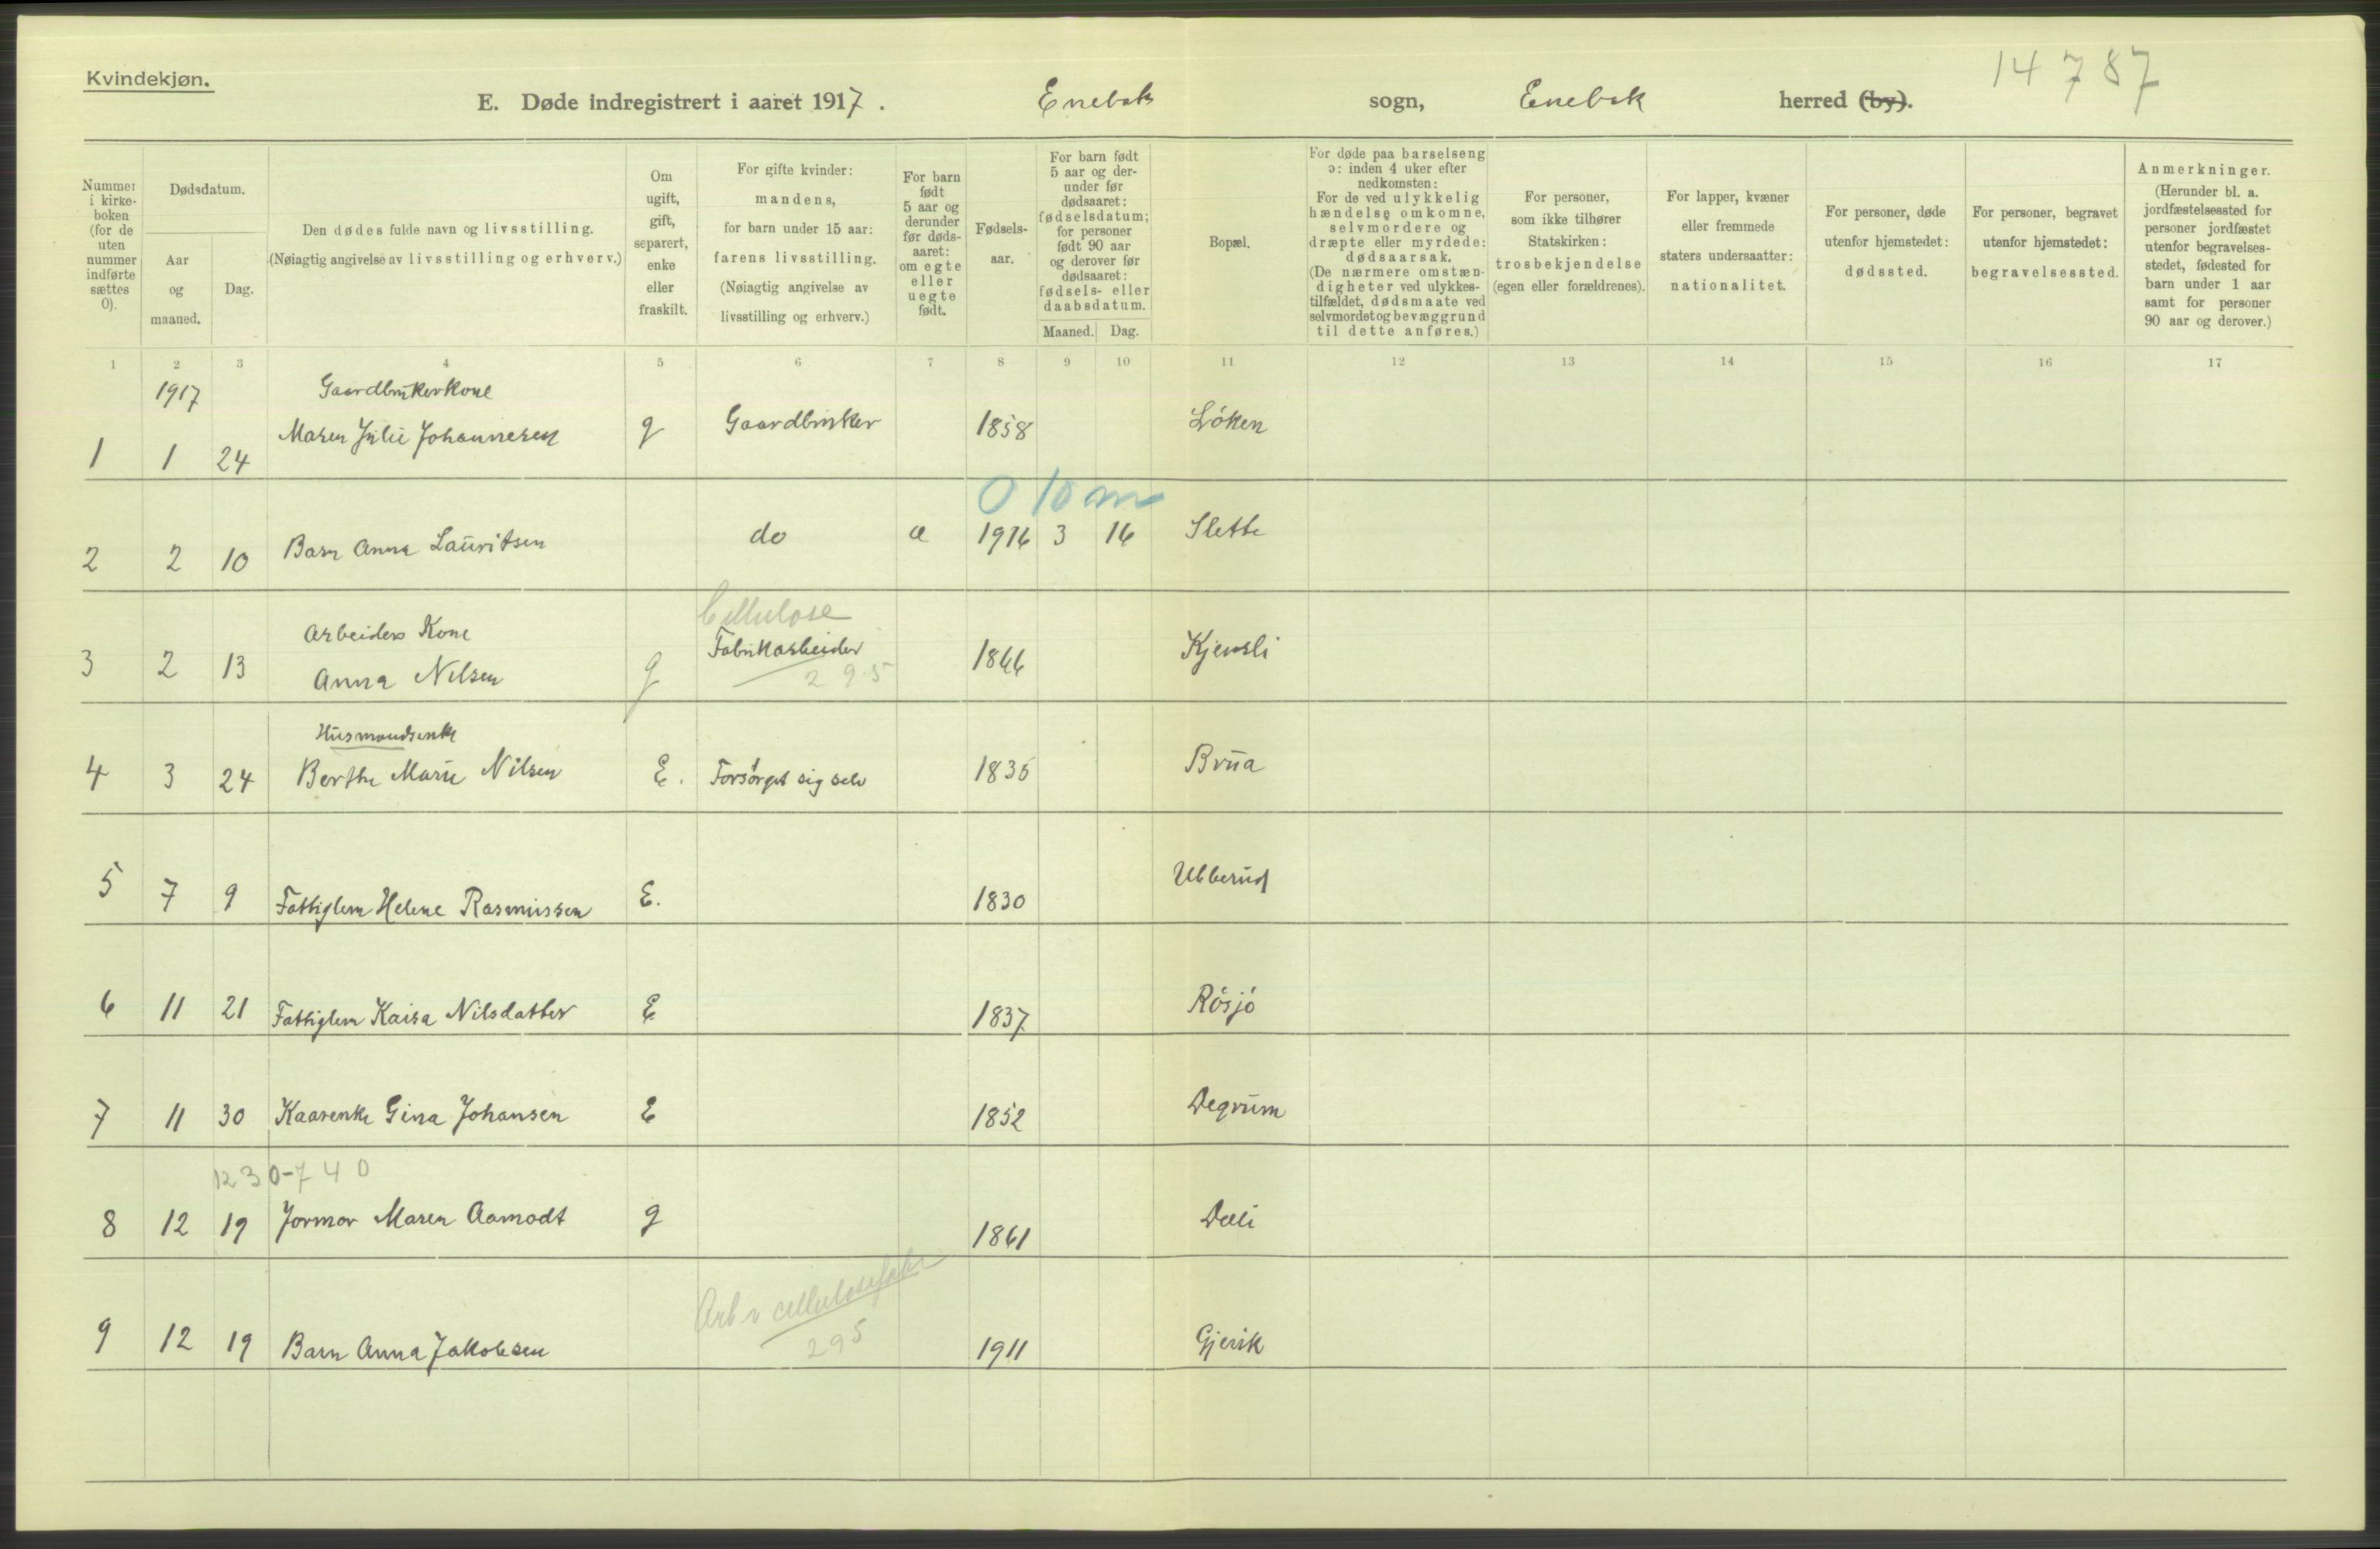 Kvindekjøn.
14 7 87
E. Døde indregistrert i aaret 1917. Enebak sogn, Enebak herred (by).
Nummer i kirkeboken (for de uten nummer indførte sættes 0).
Dødsdatum.
Aar og maaned.
Dag.
Den dødes fulde navn og livsstilling.
(Nøiagtig angivelse av livsstilling og erhverv.)
Om ugift, gift, separert, enke eller fraskilt.
For gifte kvinder:
mandens,
for barn under 15 aar:
farens livsstilling.
(Nøiagtig angivelse av
livsstilling og erhverv.)
For barn født 5 aar og derunder før dødsaaret: om egte eller uegte født.
Fødselsaar.
For barn født
5 aar og der-
under før
dødsaaret:
fødselsdatum;
for personer
født 90 aar
og derover før
dødsaaret:
fødsels- eller
daabsdatum.
Maaned. Dag.
Bopæl.
For døde paa barselseng
ɔ: inden 4 uker efter
nedkomsten:
For de ved ulykkelig
hændelse omkomne,
selvmordere og
dræpte eller myrdede:
dødsaarsak.
(De nærmere omstæn-
digheter ved ulykkes-
tilfældet, dødsmaate ved
selvmordet og bevæggrund
til dette anføres.)
For personer,
som ikke tilhører
Statskirken:
trosbekjendelse
(egen eller forældrenes).
For lapper, kvæner
eller fremmede
staters undersaatter:
nationalitet.
For personer, døde
utenfor hjemstedet:
dødssted.
For personer, begravet
utenfor hjemstedet:
begravelsessted.
Anmerkninger.
(Herunder bl. a.
jordfæstelsessted for
personer jordfæstet
utenfor begravelses-
stedet, fødested for
barn under 1 aar
samt for personer
90 aar og derover.)
1 2 3 4 5 6 7 8 9 10 11 12 13 14 15 16 17
1917 Gaardbrukerkone
1 1 24 Maren Julie Johannesen g Gaardbruker 1858 Löken
0 10 m
2 2 10 Barn Anna Lauritsen do æ 1916 3 16 Slette
Cellulose
Arbeiders Kone Fabrikarbeider
3 2 13 Anna Nilsen g 295 1866 Kjensli
Husmandsenke
4 3 24 Berthe Marie Nilsen E. Forsörget sig selv 1835 Brua
5 7 9 Fattiglem Helene Rasmussen E. 1830 Ubberud
6 11 21 Fattiglem Kaisa Nilsdatter E 1837 Rösjö
7 11 30 Kaarenke Gina Johansen E 1852 Degrum
12 30-7 40
8 12 19 Jormor Maren Aamodt g 1861 Dæli
Arb v cellulosefabr
9 12 19 Barn Anna Jakobsen 295 1911 Gjevik